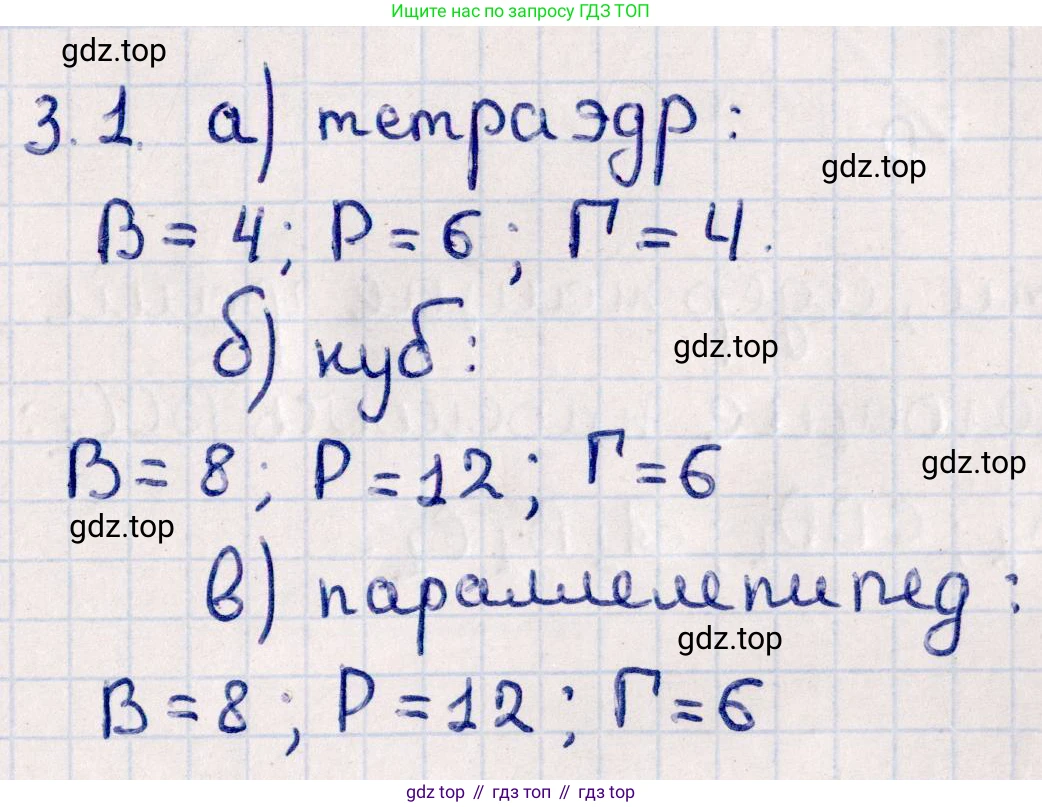 Ищите нас по запросу ГДЗ ТОП
gdz.top
3.1. а) тетраэдр:
gdz.top
В = 4; Р = 6; Г = 4.
б) куб:
gdz.top
В = 8; Р = 12; Г = 6
gdz.top
gdz.top
в) параллелепипед:
gdz.top
В = 8; Р = 12; Г = 6
gdz.top // гдз топ // гдз top